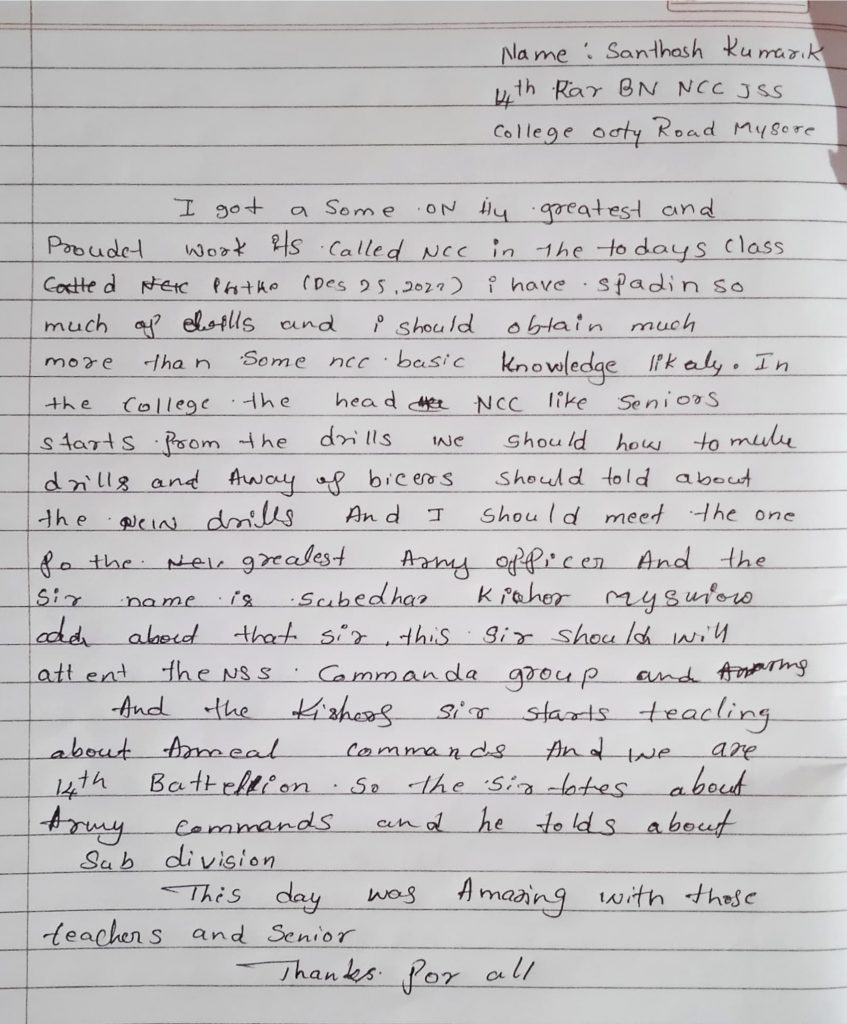 Name : Santhosh Kumar.K
14th Kar BN NCC JSS
College ooty Road Mysore
I got a some ON My greatest and
Proudet work its called NCC in the todays class
(Des 25, 2022) i have spadin so
much of drills and i should obtain much
more than some ncc basic knowledge likaly. In
the College the head NCC like Seniors
starts from the drills we should how to
drills and Away of bicers should told about
the drills And I should meet the one
fo the greatest Army officer And the
Sir name is Subedhar Kishor
that sir, this sir should will
attent the NSS Commanda group and
And the Kishors sir starts teacling
about Armeal commands And we are
14th Battellion so the sir about
Army commands and he tolds about
Sub division
This day was Amazing with those
teachers and Senior
Thanks for all